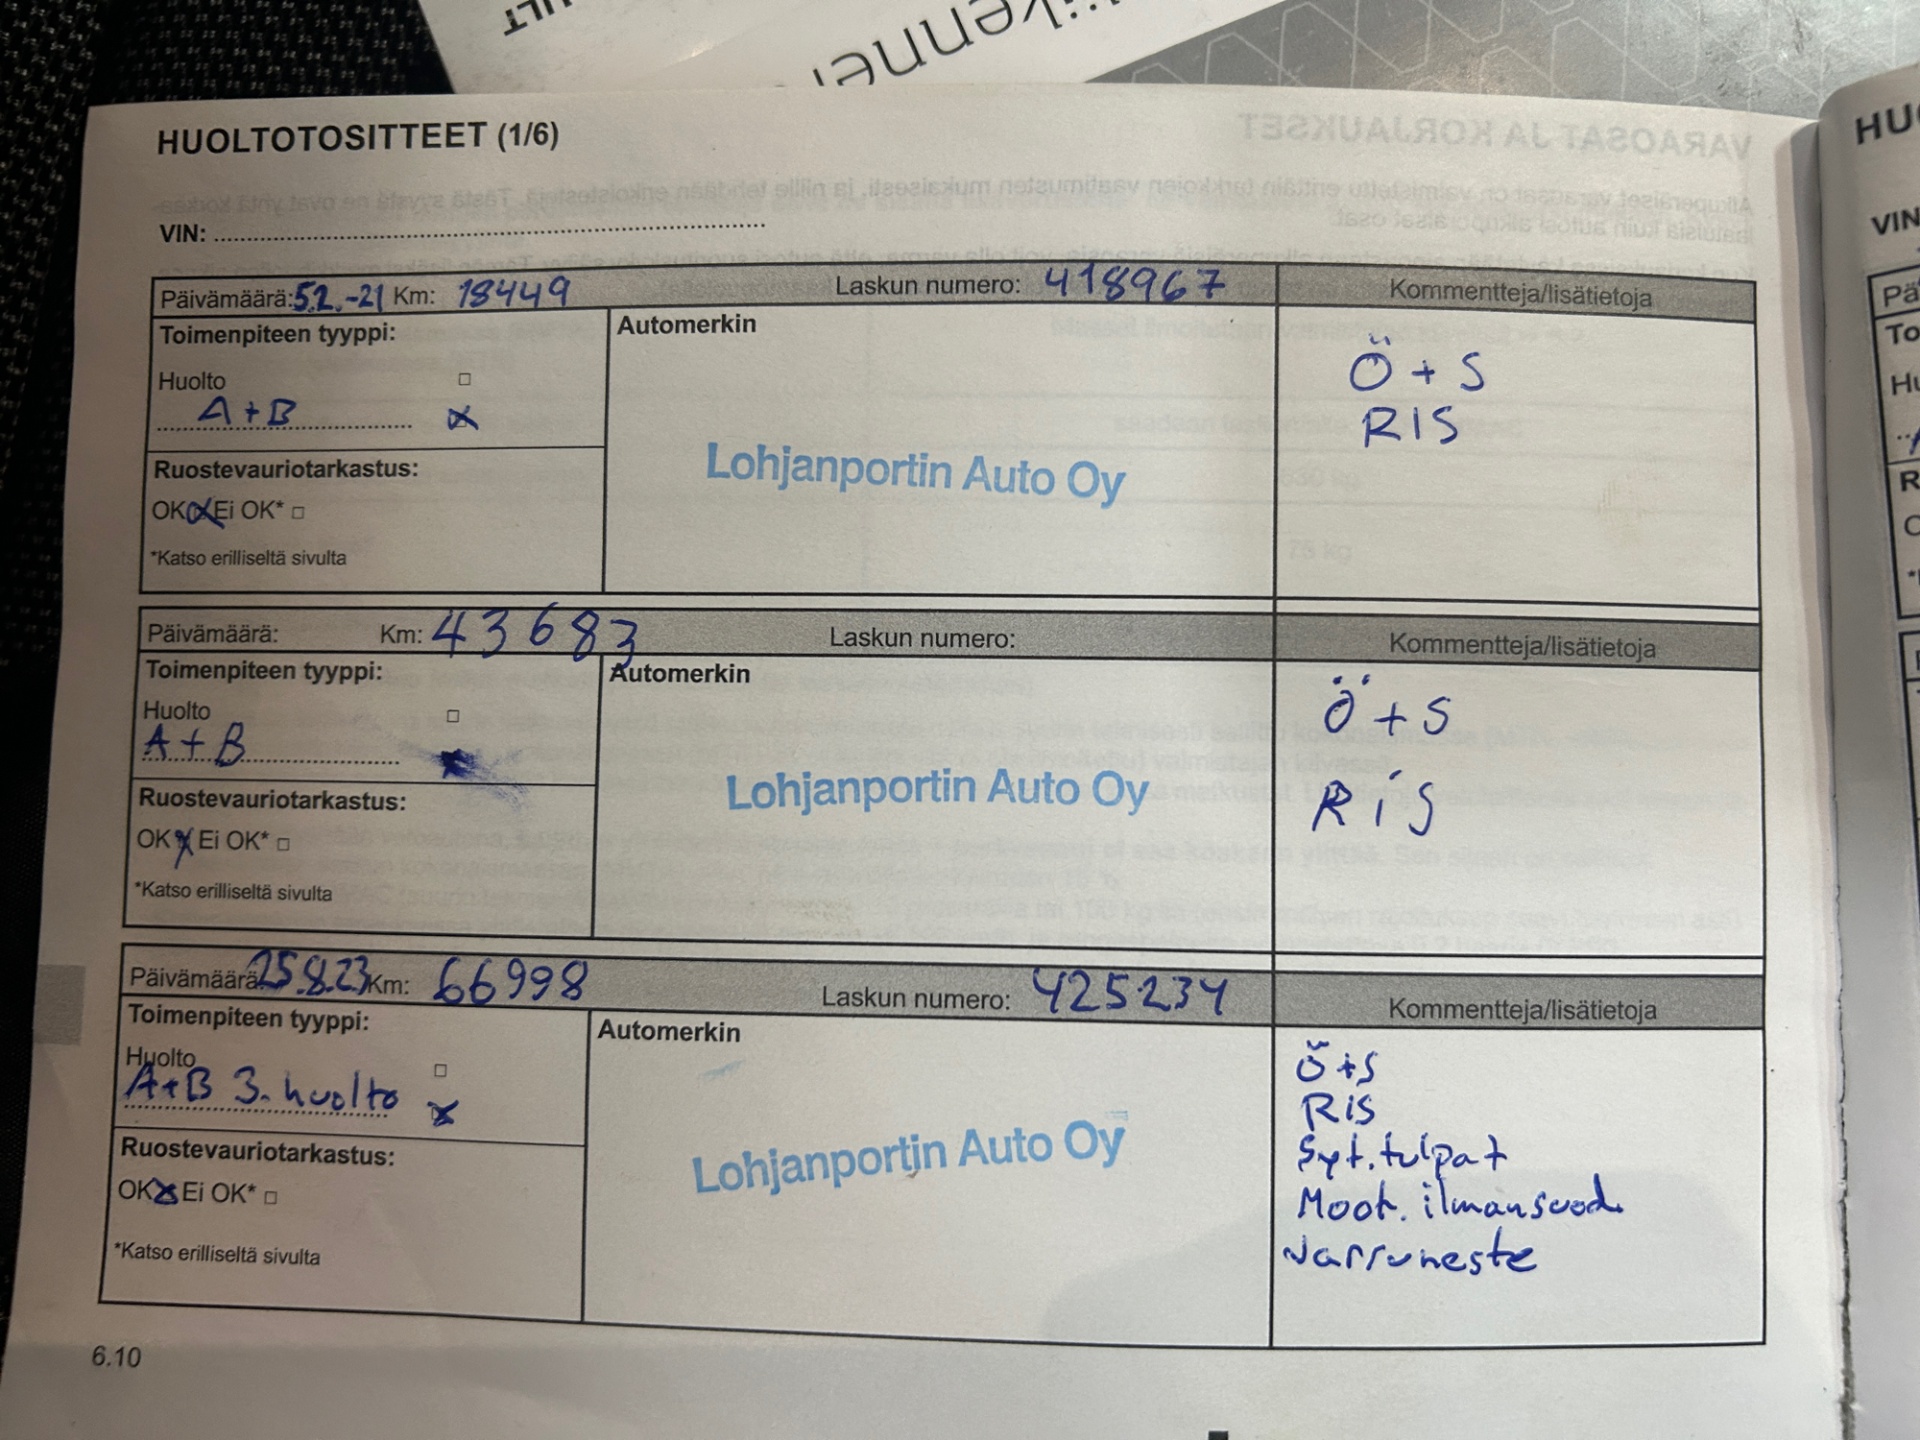 HUOLTOTOSITTEET (1/6)
VIN:
Päivämäärä: 5.2.-21 Km: 18449 Laskun numero: 418967 Kommentteja/lisätietoja
Toimenpiteen tyyppi:
Huolto
A+B
Automerkin
Lohjanportin Auto Oy
Ö + S
RIS
Ruostevauriotarkastus:
OK Ei OK*
*Katso erilliseltä sivulta
Päivämäärä: Km: 43683 Laskun numero: Kommentteja/lisätietoja
Toimenpiteen tyyppi:
Huolto
A+B
Automerkin
Lohjanportin Auto Oy
Ö + S
RiS
Ruostevauriotarkastus:
OK Ei OK*
*Katso erilliseltä sivulta
Päivämäärä 25.8.23 Km: 66998 Laskun numero: 425234 Kommentteja/lisätietoja
Toimenpiteen tyyppi:
Huolto
A+B 3. huolto
Automerkin
Lohjanportin Auto Oy
Ö+S
RiS
Syt.tulpat
Moot. ilmansuod.
Jarruneste
Ruostevauriotarkastus:
OK Ei OK*
*Katso erilliseltä sivulta
6.10
HU
VIN